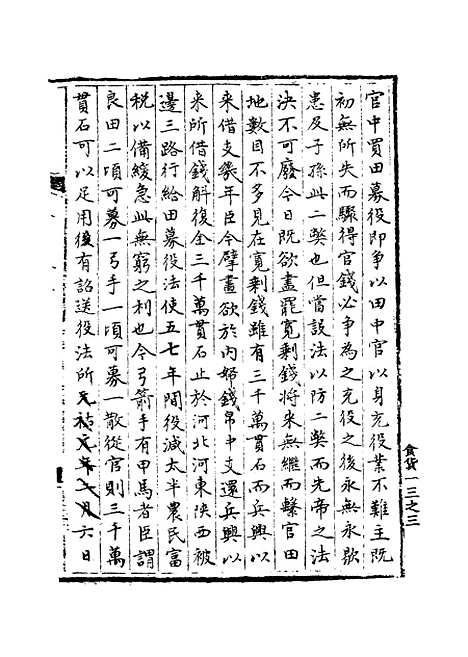 官中買田募役即争以田中官以身充役業不難主既
初無所失而驟得官錢必争為之充役之後永無永歇
患及子孫此二獘也但當設法以防二獘而先帝之法
決不可廢今日既欲盡罷寬剰錢將来無繼而繫官田
地數目不多見在寬剰錢雖有三千萬貫石而兵興以
来借支幾年臣今擘畫欲於内帑錢帛中支還兵興以
来所借錢斛復全三千萬貫石止於河北河東陝西被
邊三路行給田募役法使五七年間役減太半農民富
税以備緩急此無窮之利也今弓箭手有甲馬者臣謂
良田二項可募一弓手一項可募一散從官則三千萬
貫石可以足用後有詔送役法所元祐元年二月六日
食貨一三之三